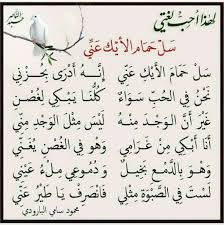 لهذا أحب لغتي
سَلْ حَمَامَ الأَيْكِ عَنِّي
سَلْ حَمَامَ الأَيْكِ عَنِّي إِنَّهُ أَدْرَى بِحُزْنِي
نَحْنُ فِي الحُبِّ سَوَاءٌ كُلُّنَا يَبْكِي لِغُصْنِ
غَيْرَ أَنَّ الوَجْدَ مِنْهُ لَيْسَ مِثْلَ الوَجْدِ مِنِّي
أَنَا أَبْكِي مِنْ غَرَامِي وَهوَ فِي الغُصْنِ يُغَنِّي
وَهوَ بِالدَّمْعِ بَخِيلٌ وَدُمُوعِي مِلْءُ عَيْنِي
لَسْتَ فِي الصَّبْوَةِ مِثْلِي فَانْصَرِفْ يَا طَيْرُ عَنِّي
محمود سامي البارودي